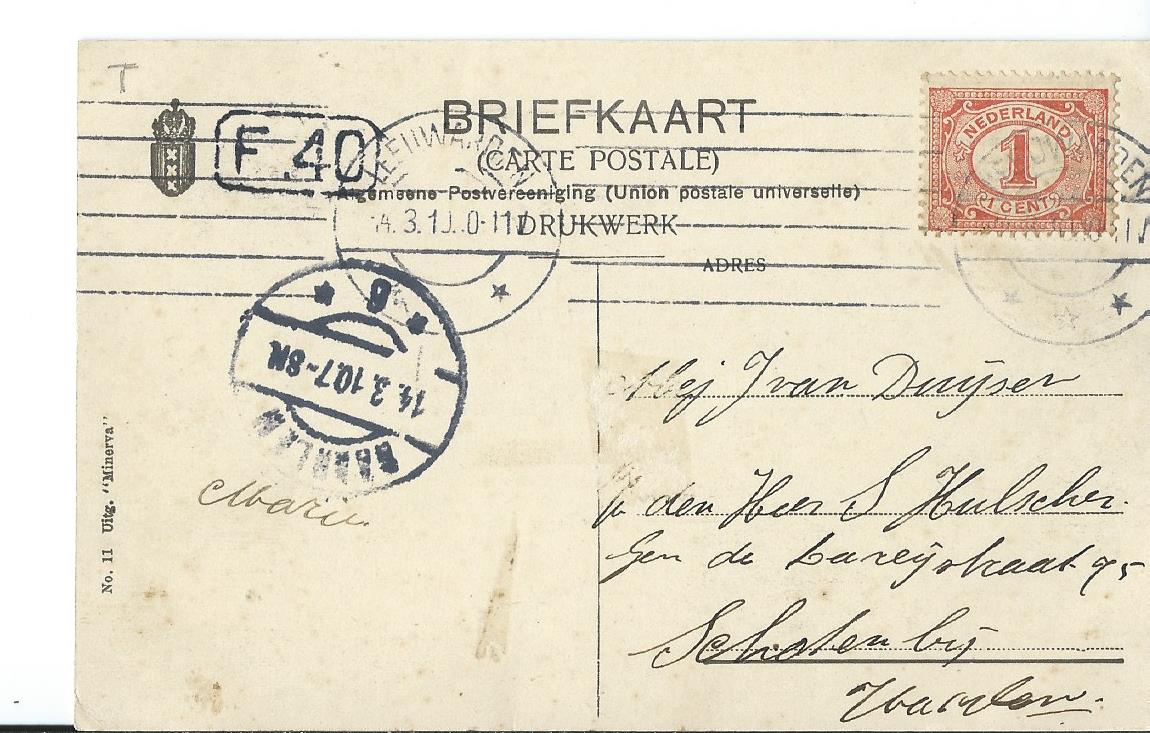 T
BRIEFKAART
F 40
(CARTE POSTALE)
Algemeene Postvereeniging (Union postale universelle)
DRUKWERK
ADRES
LEEUWARDEN
14.3.10.10-11V
NEDERLAND
1
1 CENT
6
14.3.10.7-8N.
HAARLEM
No. 11 Uitg. "Minerva"
Marie
Mej J van Duijser
p/a den Heer S Hulscher.
Gen de Lareijstraat 95
Schoten bij
Haarlem.